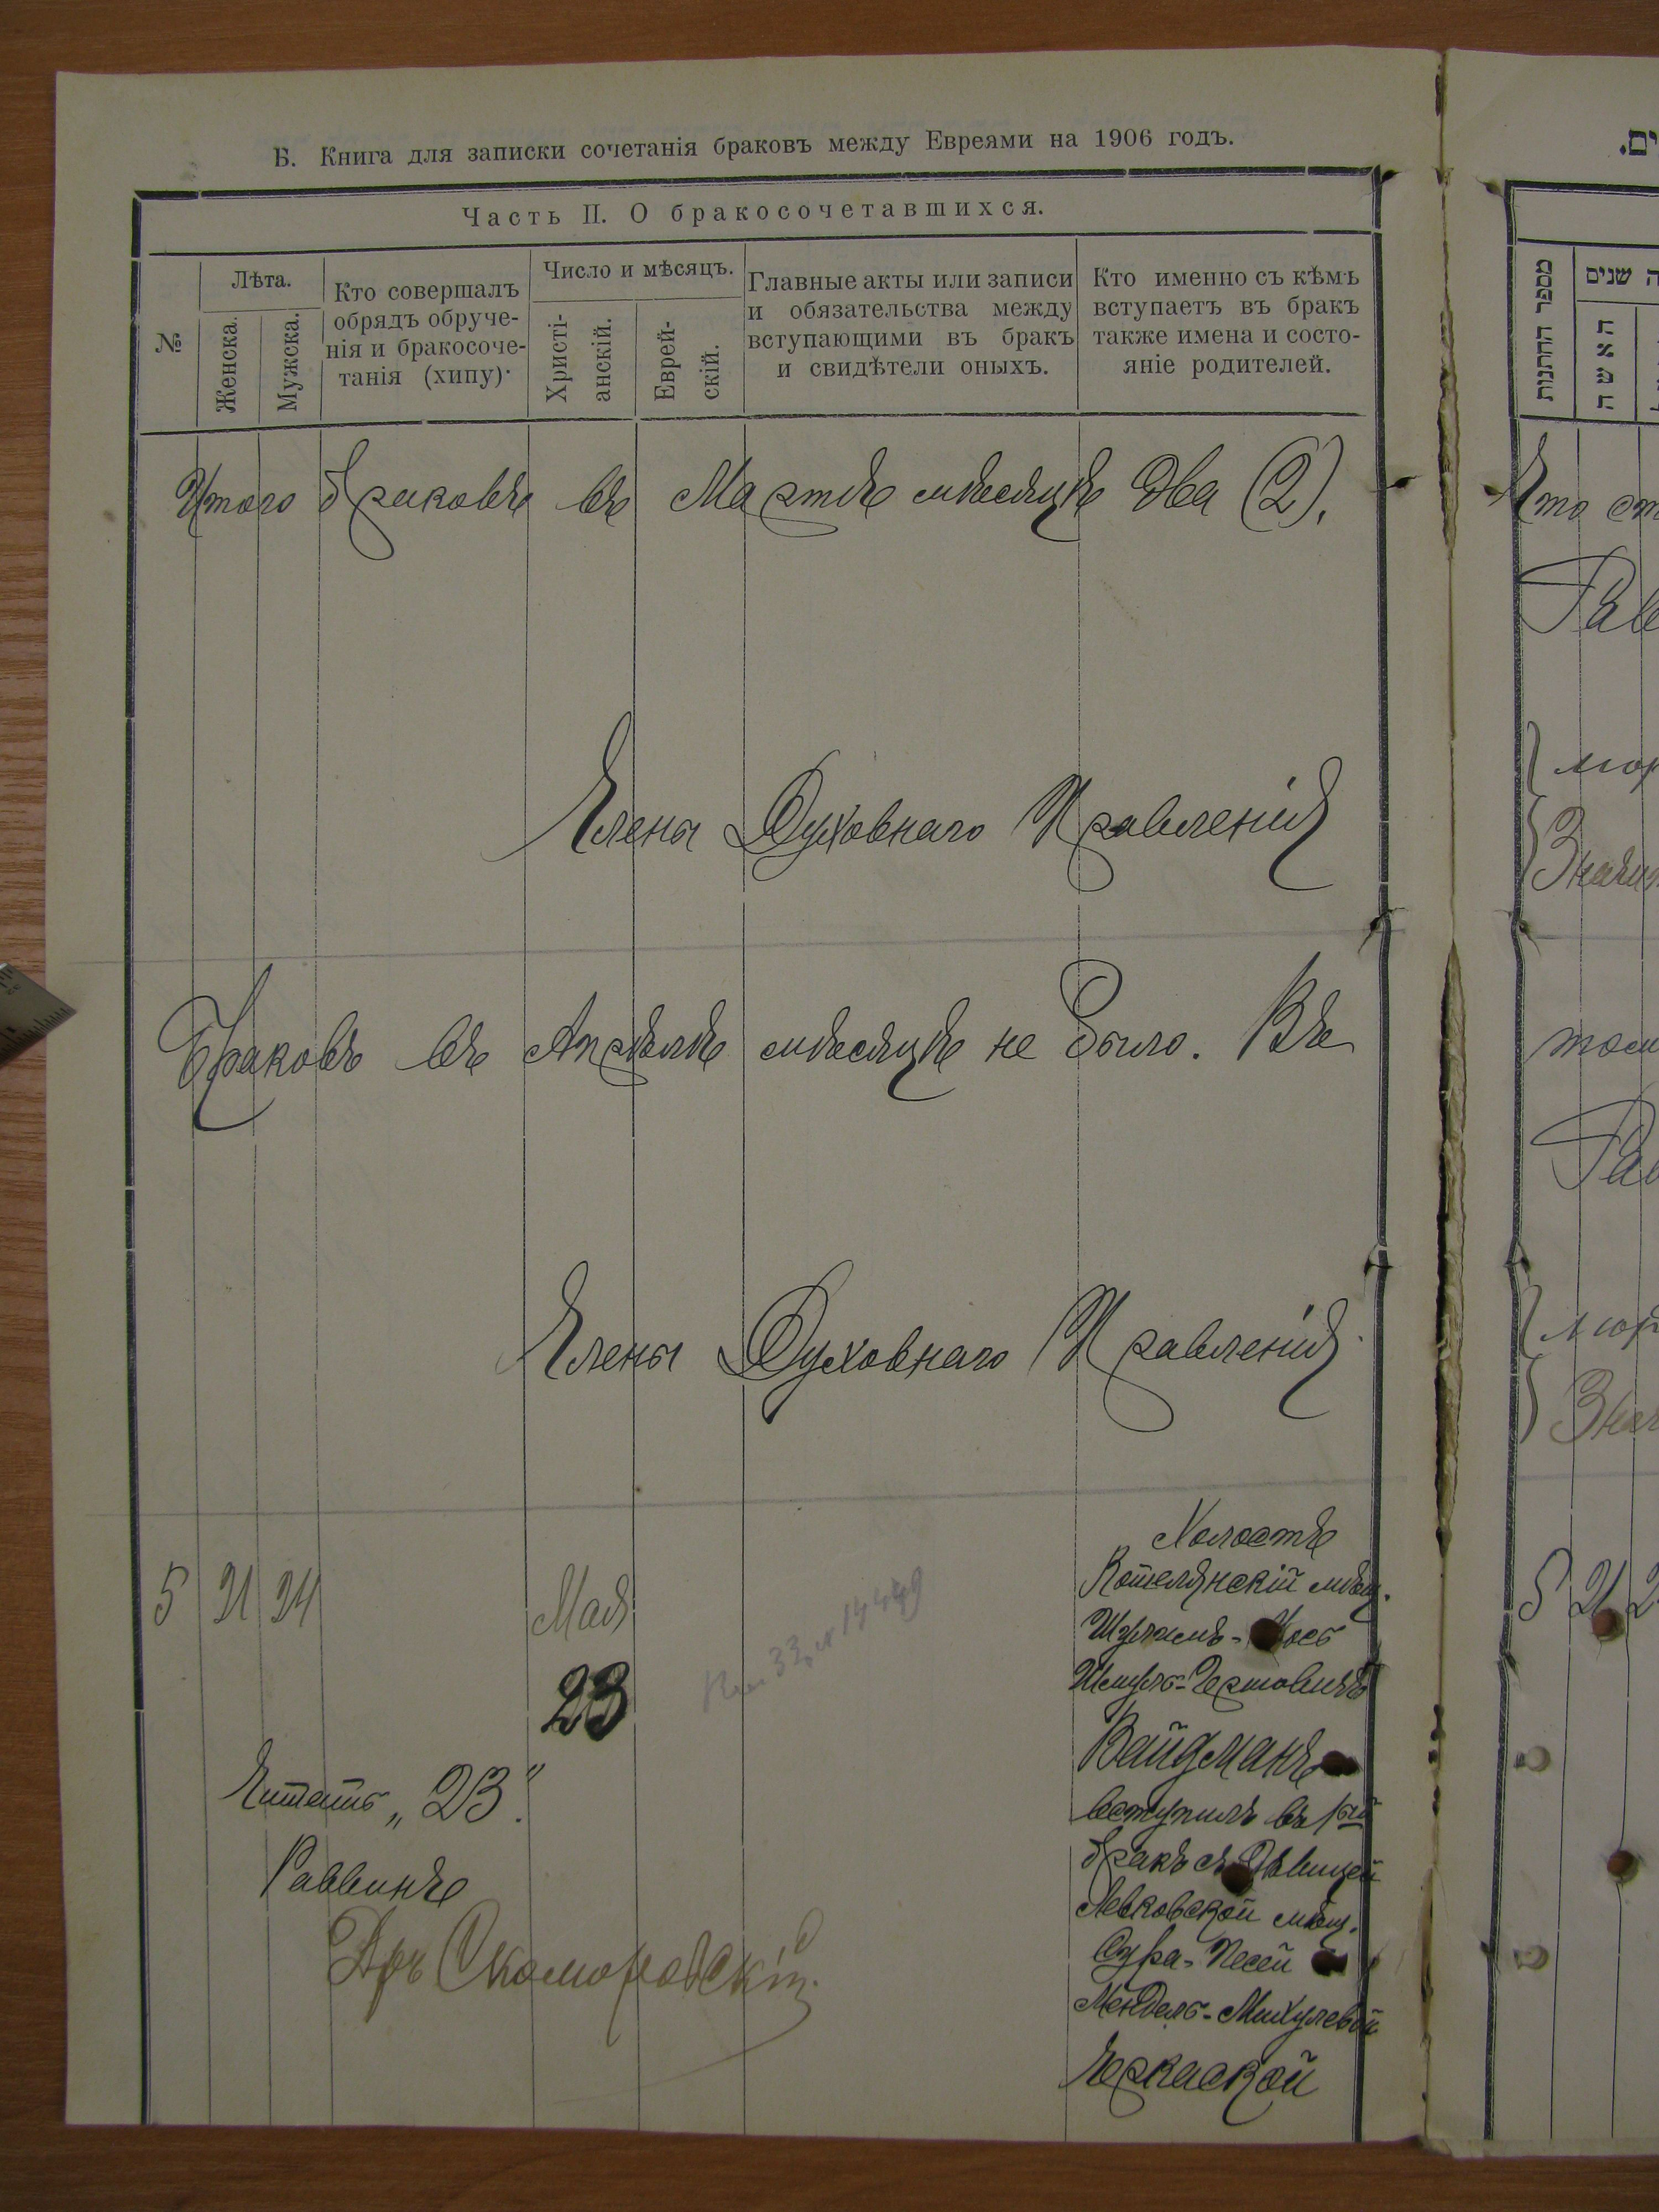 Б. Книга для записки сочетанія браковъ между Евреями на 1906 годъ.
Часть II. О бракосочетавшихся.
№
Лѣта.
Женска.
Мужска.
Кто совершалъ
обрядъ обруче-
нія и бракосоче-
танія (хипу).
Число и мѣсяцъ.
Христі-
анскій.
Еврей-
скій.
Главные акты или записи
и обязательства между
вступающими въ бракъ
и свидѣтели оныхъ.
Кто именно съ кѣмъ
вступаетъ въ бракъ
также имена и состо-
яніе родителей.
Итого браковъ въ Мартѣ мѣсяцѣ два (2).
Члены Духовнаго Правленія
Браковъ въ Апрѣлѣ мѣсяцѣ не было. Въ
Члены Духовнаго Правленія
5 21 24
Мая
23
Холостъ
Котелянскій мѣщ.
Шулимъ-
Шмуль-Гершовичъ
Вайдманъ
вступилъ въ 1ый
бракъ съ дѣвицей
Левковской мѣщ.
Сура-Песей
Мендель-Михулевой
Черкаской
Читать „23".
Раввинъ
Дръ Скоморовскій
ים.
מספר החתונות
ה שנים
האשה
Что
5 21 2